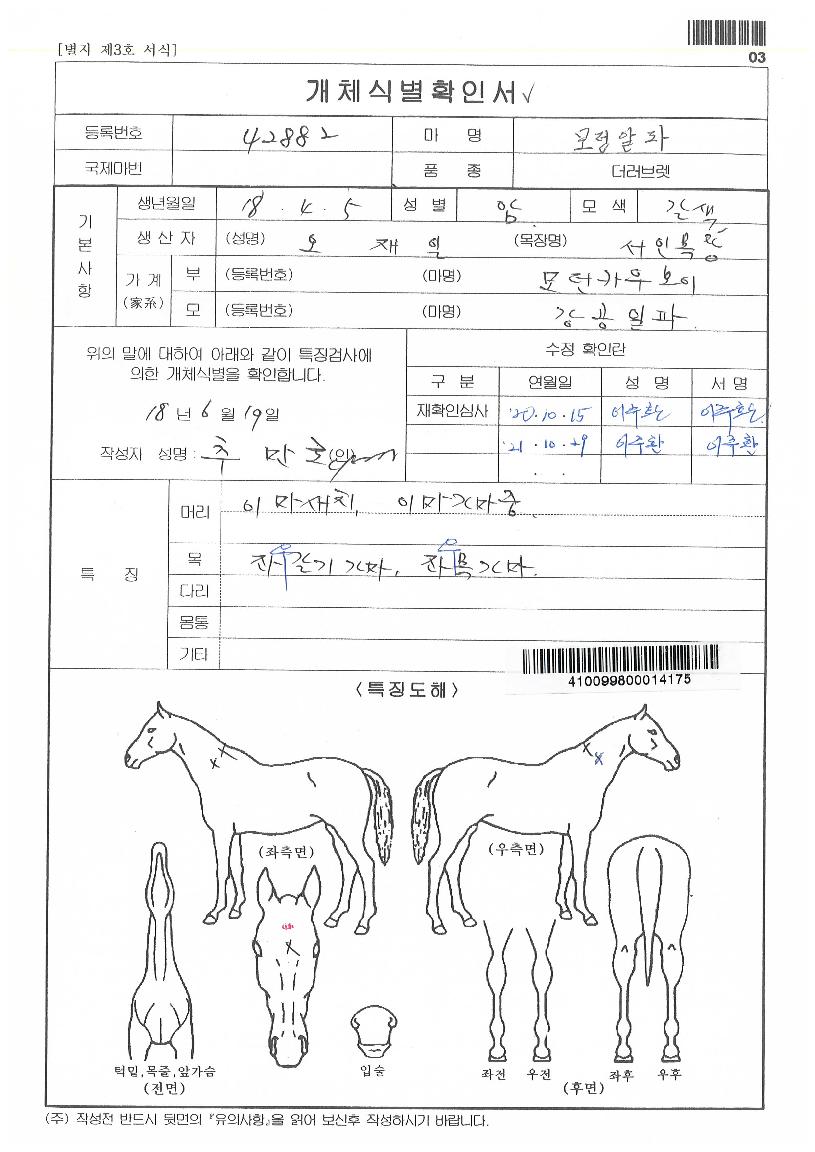 [별지 제3호 서식]
03
개체식별확인서√
등록번호 42882 마 명
국제마번 품 종 더러브렛
기본사항
생년월일 18 . 4 . 5 성 별 암 모 색 갈색
생 산 자 (성명) 오 재 일 (목장명) 서인목장
가 계 (家系) 부 (등록번호) (마명) 모던카우보이
모 (등록번호) (마명) 강공일파
위의 말에 대하여 아래와 같이 특징검사에
의한 개체식별을 확인합니다.
18 년 6 월 19 일
작성자 성명 : 추 만 호 (인)
수정 확인란
구 분 연월일 성 명 서 명
재확인심사 '20.10.15 이주환 이주환
'21.10.29 이주환 이주환
. .
특 징
머리 이마새치, 이마가마중.
목 좌우갈기가마, 좌우목가마.
다리
몸통
기타
410099800014175
<특징도해>
(좌측면) (우측면)
턱밑,목줄,앞가슴
(전면)
입술
좌전 우전 좌후 우후
(후면)
(주) 작성전 반드시 뒷면의 『유의사항』을 읽어 보신후 작성하시기 바랍니다.